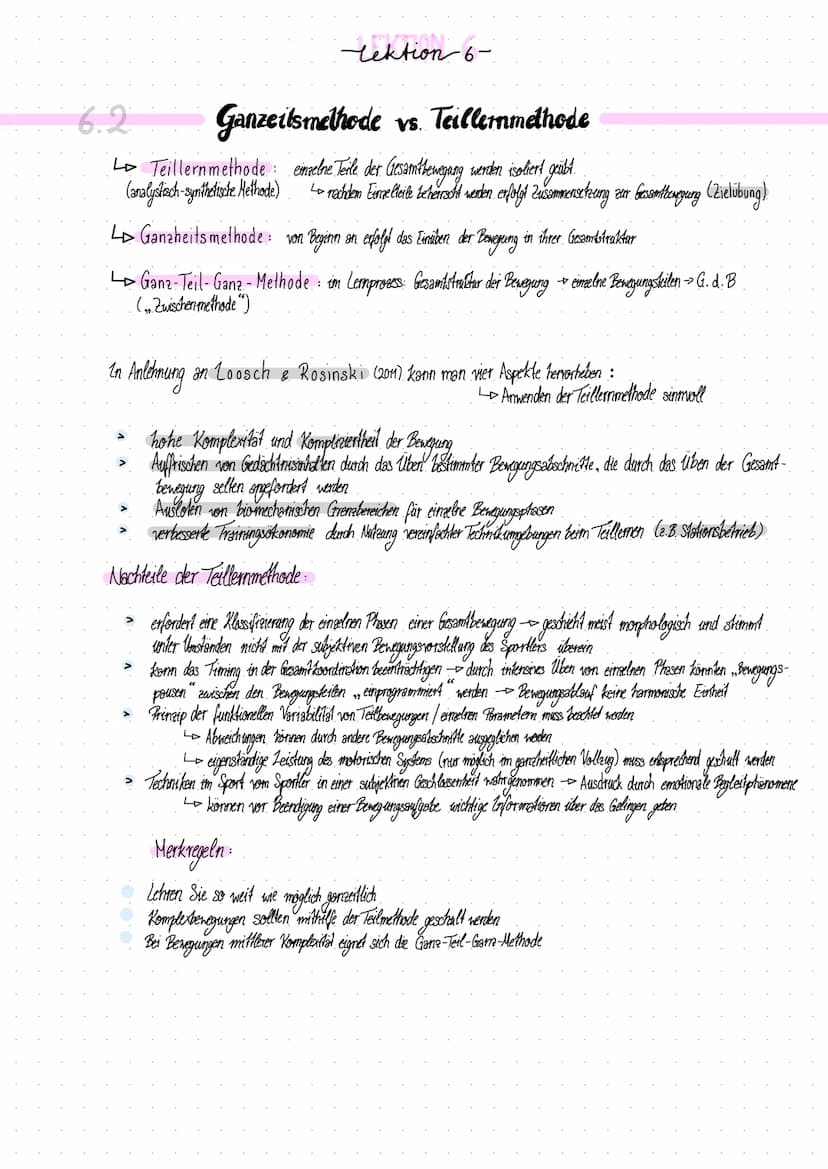 LEKTION 6
Lektion 6
6.2
Ganzeitsmethode vs. Teillernmethode
↳ Teillernmethode: einzelne Teile der Gesamtbewegung werden isoliert geübt.
(analytisch-synthetische Methode) ↳ nachdem Einzelteile beherrscht werden erfolgt Zusammensetzung zur Gesamtbewegung (Zielübung)
↳ Ganzheitsmethode: von Beginn an erfolgt das Einüben der Bewegung in ihrer Gesamtstruktur
↳ Ganz-Teil-Ganz-Methode: im Lernprozess: Gesamtstruktur der Bewegung → einzelne Bewegungsteilen → G. d. B
(„Zwischenmethode")
In Anlehnung an Loosch & Rosinski (2011) kann man vier Aspekte hervorheben:
↳ Anwenden der Teillernmethode sinnvoll
> hohe Komplexität und Kompliziertheit der Bewegung
> Auffrischen von Gedächtnisinhalten durch das Üben bestimmter Bewegungsabschnitte, die durch das Üben der Gesamt-
bewegung selten angefordert werden
> Ausloten von biomechanischen Grenzbereichen für einzelne Bewegungsphasen
> verbesserte Trainingsökonomie durch Nutzung vereinfachter Technikumgebungen beim Teillernen (z.B. Stationsbetrieb)
Nachteile der Teillernmethode:
> erfordert eine Klassifizierung der einzelnen Phasen einer Gesamtbewegung → geschieht meist morphologisch und stimmt
unter Umständen nicht mit der subjektiven Bewegungsvorstellung des Sportlers überein
> kann das Timing in der Gesamtkoordination beeinträchtigen → durch intensives Üben von einzelnen Phasen könnten „Bewegungs-
pausen" zwischen den Bewegungsteilen „einprogrammiert" werden → Bewegungsablauf keine harmonische Einheit
> Prinzip der funktionellen Variabilität von Teilbewegungen / einzelnen Parametern muss beachtet werden
↳ Abweichungen können durch andere Bewegungsabschnitte ausgeglichen werden
↳ eigenständige Leistung des motorischen Systems (nur möglich im ganzheitlichen Vollzug) muss entsprechend geschult werden
> Techniken im Sport vom Sportler in einer subjektiven Geschlossenheit wahrgenommen → Ausdruck durch emotionale Begleitphänomene
↳ können vor Beendigung einer Bewegungsaufgabe wichtige Informationen über das Gelingen geben
Merkregeln:
Lehren Sie so weit wie möglich ganzeitlich
Komplexbewegungen sollten mithilfe der Teilmethode geschult werden
Bei Bewegungen mittlerer Komplexität eignet sich die Ganz-Teil-Ganz-Methode